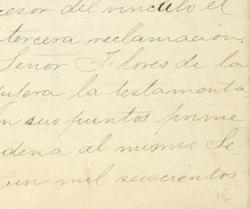 cesor del vinculo el
tercera reclamacion.
Señor Flores de la
la testamenta
sus puntos prime
dena al mismo Se
un mil seiscientos